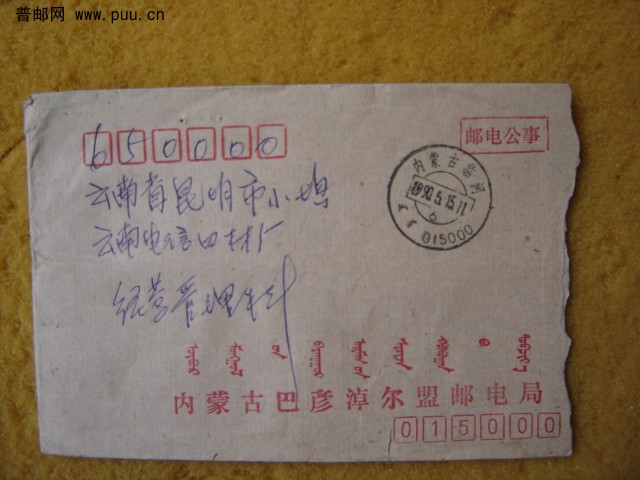 普邮网 www.puu.cn
650000
邮电公事
内蒙古临河
1990.5.15.11
6
015000
云南省昆明市小坝
云南电信器材厂
经营管理科
内蒙古巴彦淖尔盟邮电局
015000